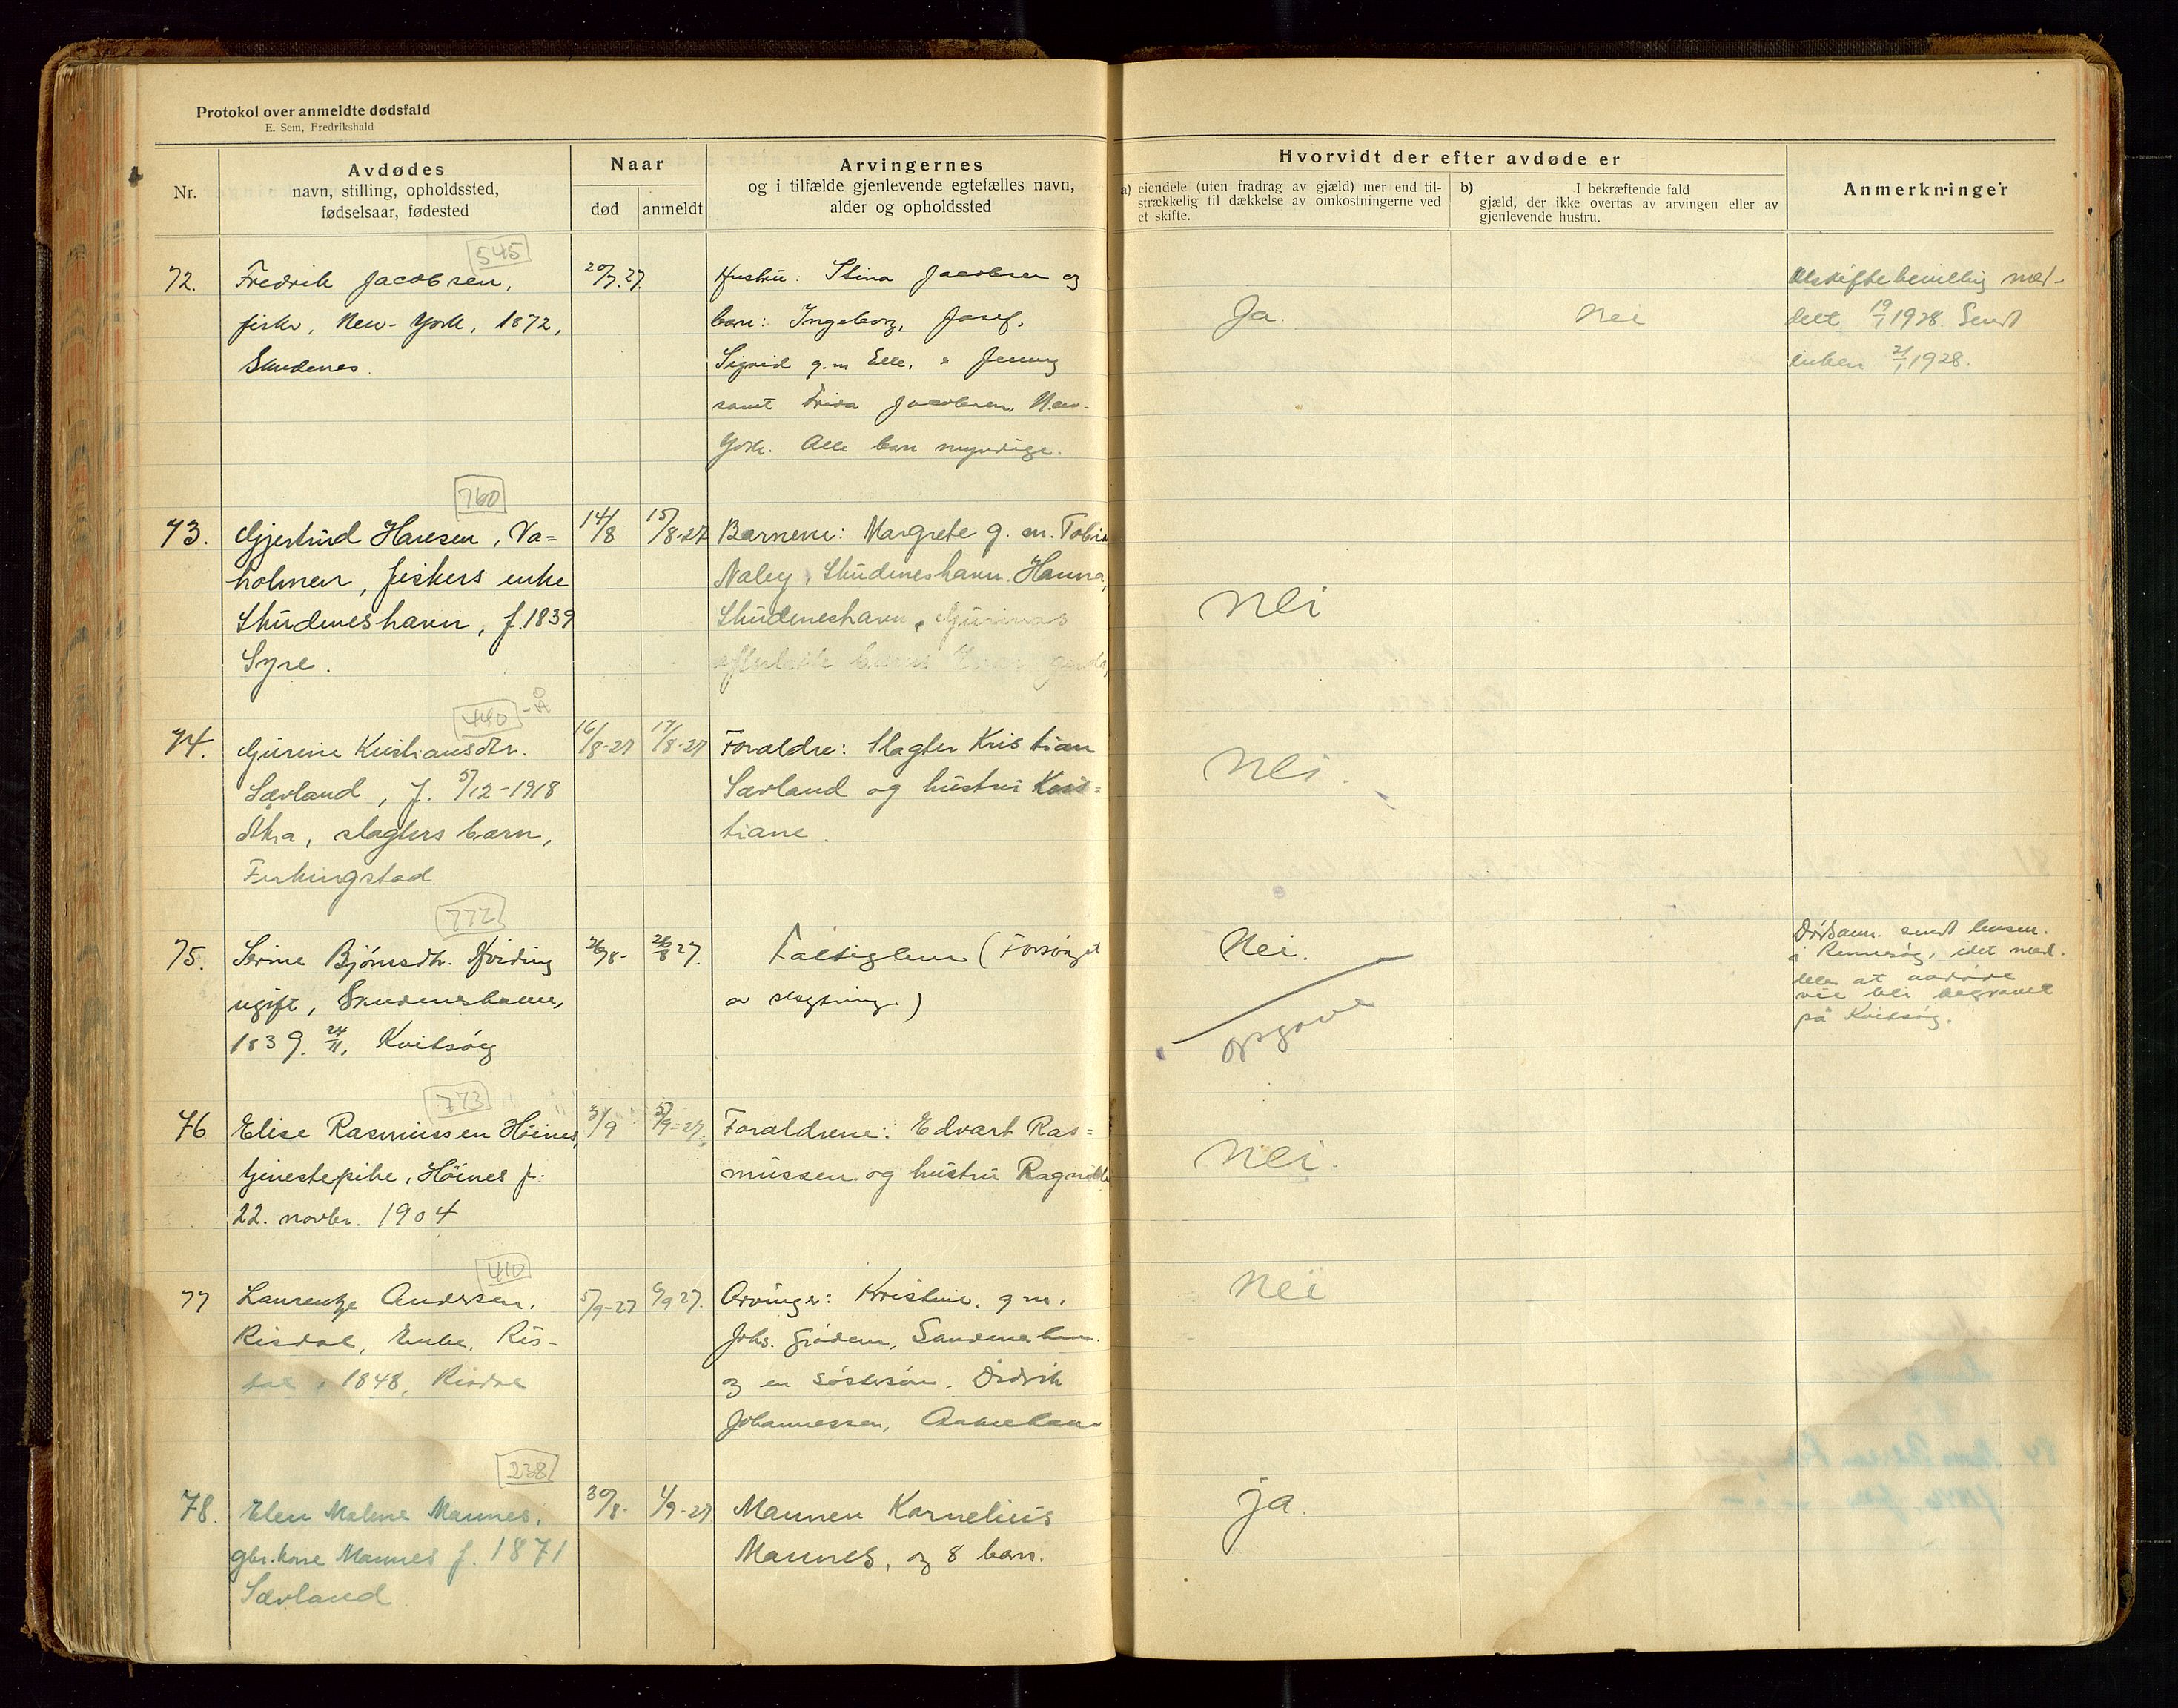 Protokol over anmeldte dødsfald
E. Sem, Fredrikshald
Nr.
Avdødes
navn, stilling, opholdssted,
fødselsaar, fødested
Naar
død
anmeldt
Arvingernes
og i tilfælde gjenlevende egtefælles navn,
alder og opholdssted
Hvorvidt der efter avdøde er
a) eiendele (uten fradrag av gjæld) mer end til-
strækkelig til dækkelse av omkostningerne ved
et skifte.
b) I bekræftende fald
gjæld, der ikke overtas av arvingen eller av
gjenlevende hustru.
Anmerkninger
545
72.
Fredrik Jacobsen,
fisker, New-York, 1872,
Skudenes.
20/7.27.
Hustru: Stina Jacobsen og
barn: Ingeborg, Josef,
Sigrid g.m Elle, Jenny
samt Frida Jacobsen, New-
York. Alle barn myndige.
Ja.
Nei
Uskiftebevilling med-
delt 19/1 1928. Sendt
enken 21/1 1928.
760
73.
Gjertrud Hansen, Va=
holmen, fiskers enke
Skudeneshavn, f. 1839
Syre.
14/8
15/8-27
Barnene: Margrete g. m. Tobias
Naley, Skudeneshavn. Hanna,
Skudeneshavn, Gurinas
efterlatte barn
nei
440 - Å
74.
Gurine Kristiansdtr.
Sævland, f. 5/12-1918
Åkra, slagters barn,
Ferkingstad
16/8-27
17/8-27
Foraldre: Slagter Kristian
Sævland og hustru Kris=
tiane.
Nei.
772
75.
Serine Bjørnsdtr. Kviding
ugift, Skudeneshavn,
1839. 24/11, Kvitsøy
26/8-
26/8 27.
Fattiglem (Forsørget
av slegtning)
Nei.
opgave
Dødsanm. sendt lensm.
i Rennesøy, idet med-
deles at avdøde
vil bli begravet
på Kvitsøy.
773
76
Elise Rasmussen Høines,
tjenestepike, Høines f.
22. novbr. 1904
3/9
5/9-27.
Foraldrene: Edvart Ras=
mussen og hustru Ragnilde
Nei.
410
77
Laurentze Andersen.
Risdal, Enke, Ris-
dal, 1848, Risdal
5/9-27
6/9 27.
Arvinger: Kristine, g m.
Johs. Grødem, Skudeneshavn.
og en søstersøn, Didrik
Johannessen, Aakrehavn
Nei
238
78.
Elen Malene Mannes.
gbr. kone Mannes f. 1871
Sævland
30/8-
1/9-27
Mannen Kornelius
Mannes, og 8 barn.
ja.